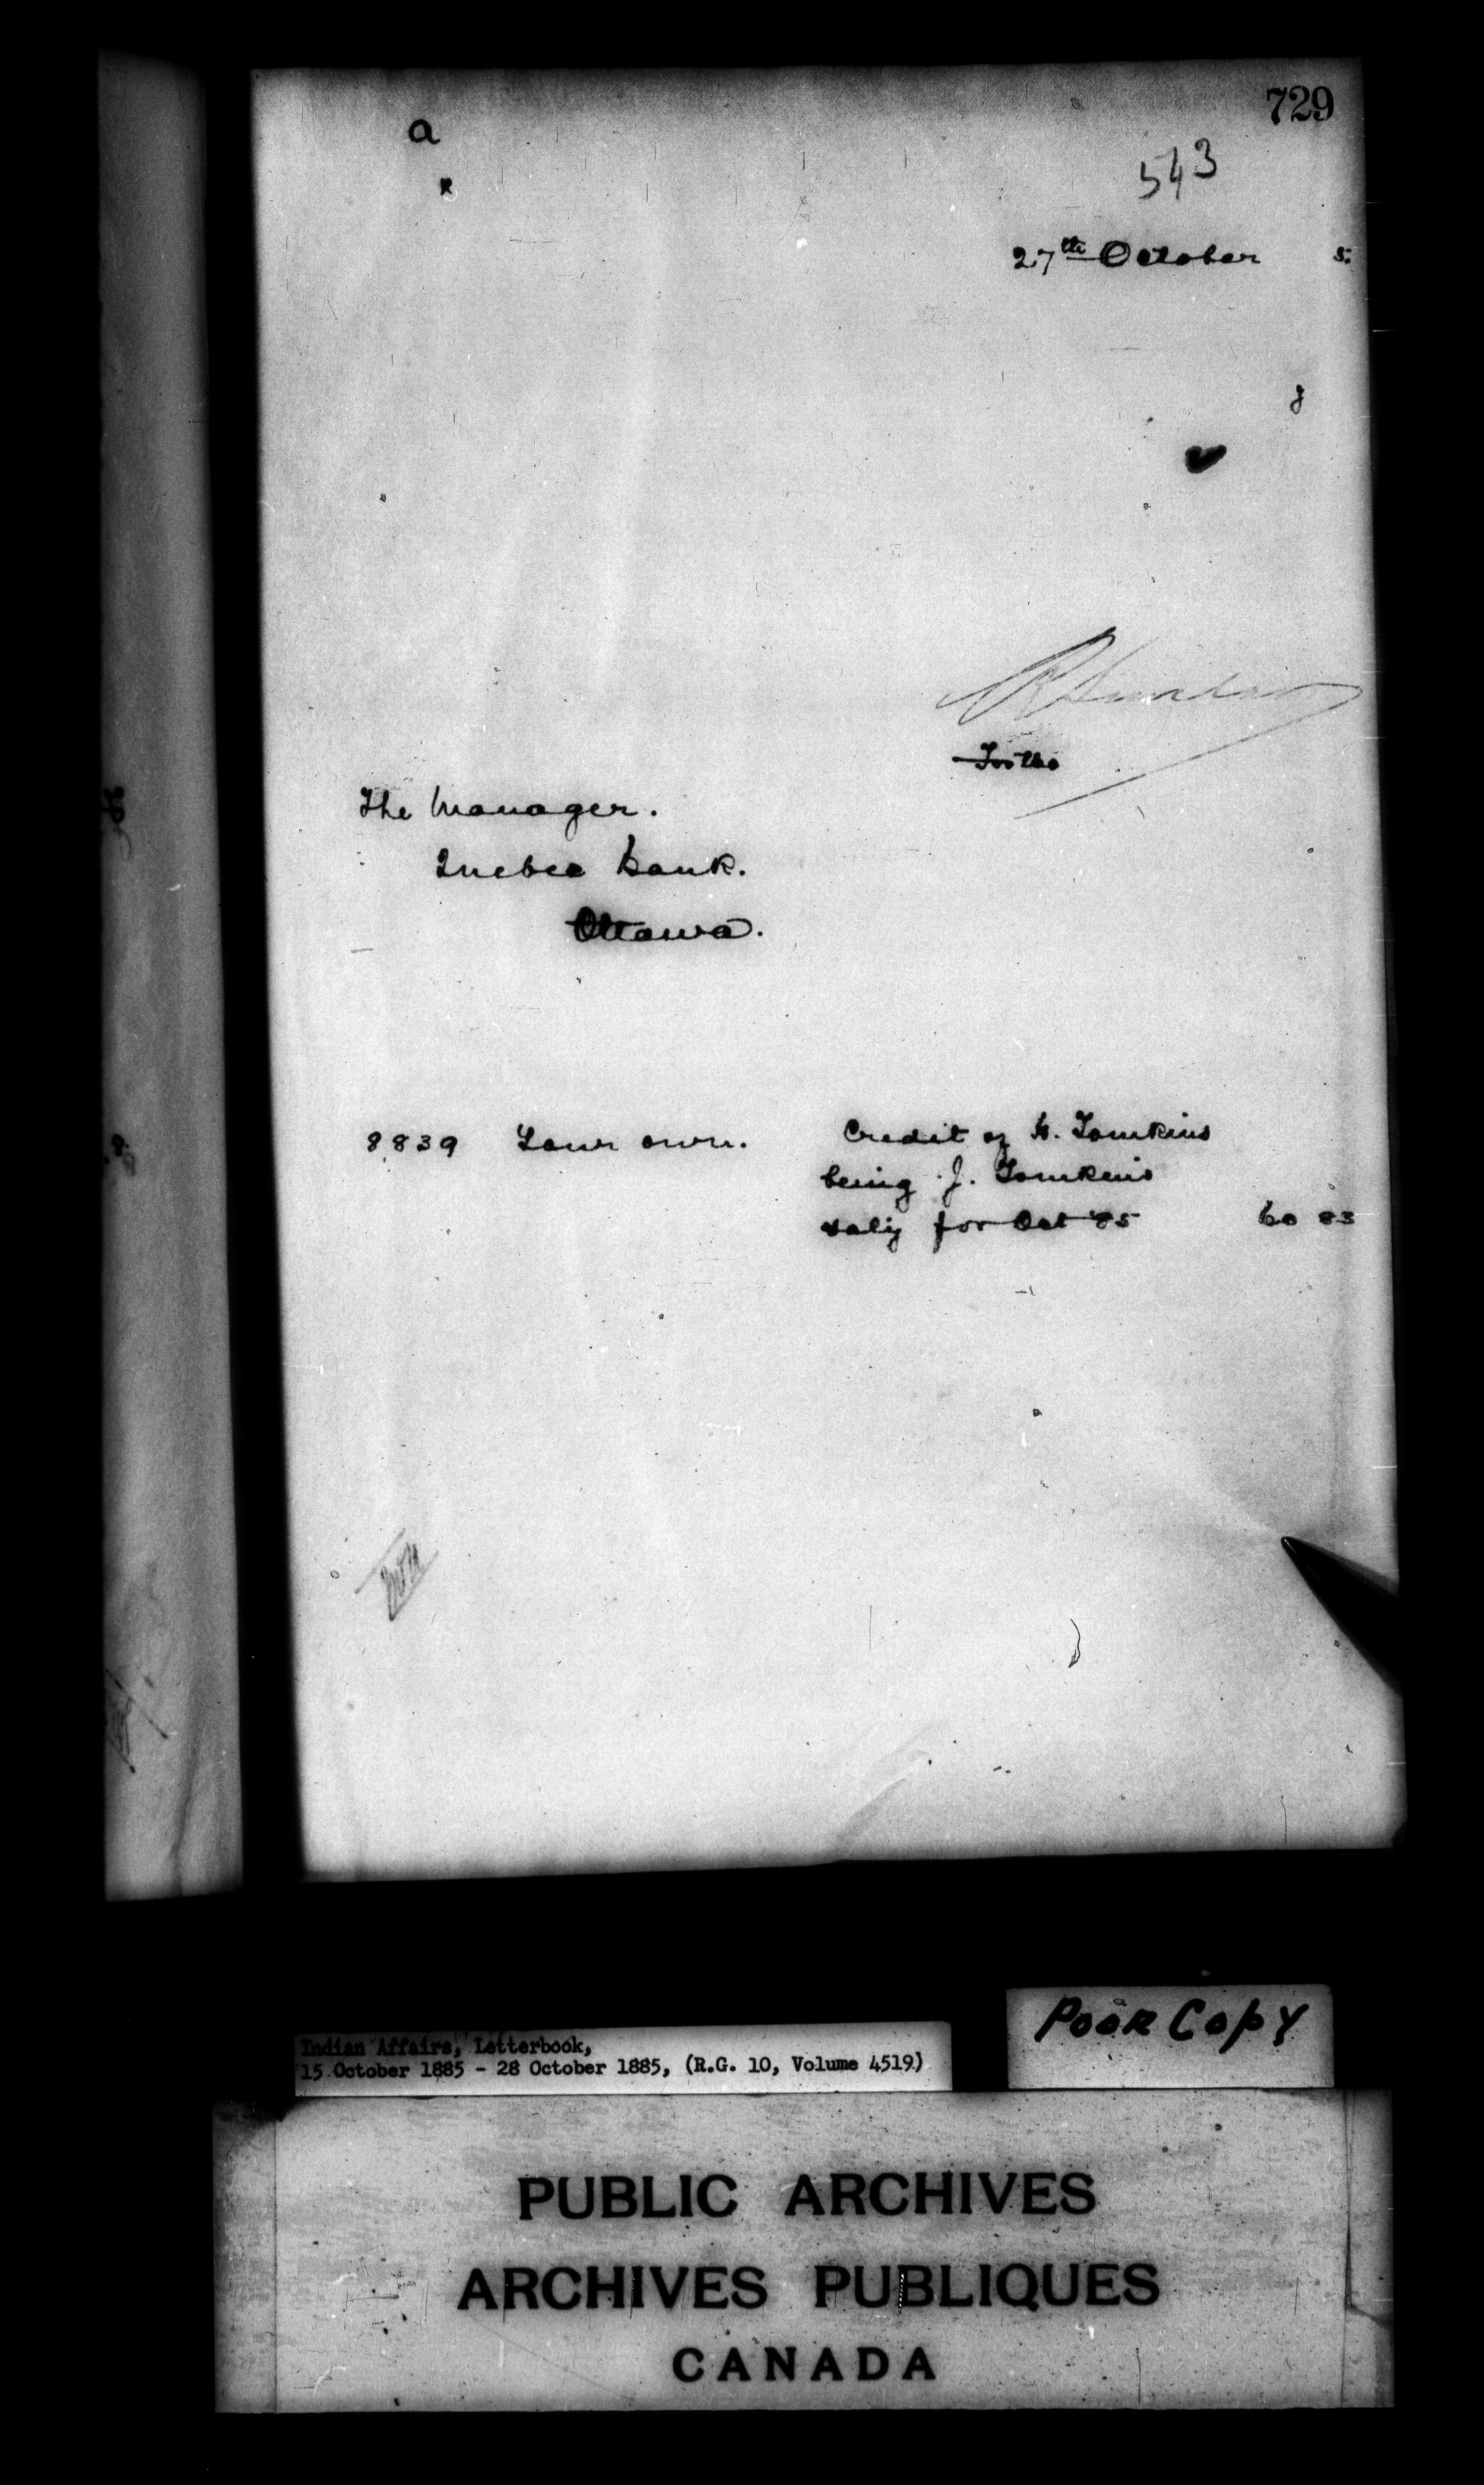 729
a
543
27th October 5.
The Manager.
Quebec Bank.
Ottawa.
8839 Your own. Credit of H. Tomkins
being J. Tomkins
saly for Oct 85 60 83
Indian Affairs, Letterbook,
15 October 1885 - 28 October 1885, (R.G. 10, Volume 4519)
Poor Copy
PUBLIC ARCHIVES
ARCHIVES PUBLIQUES
CANADA